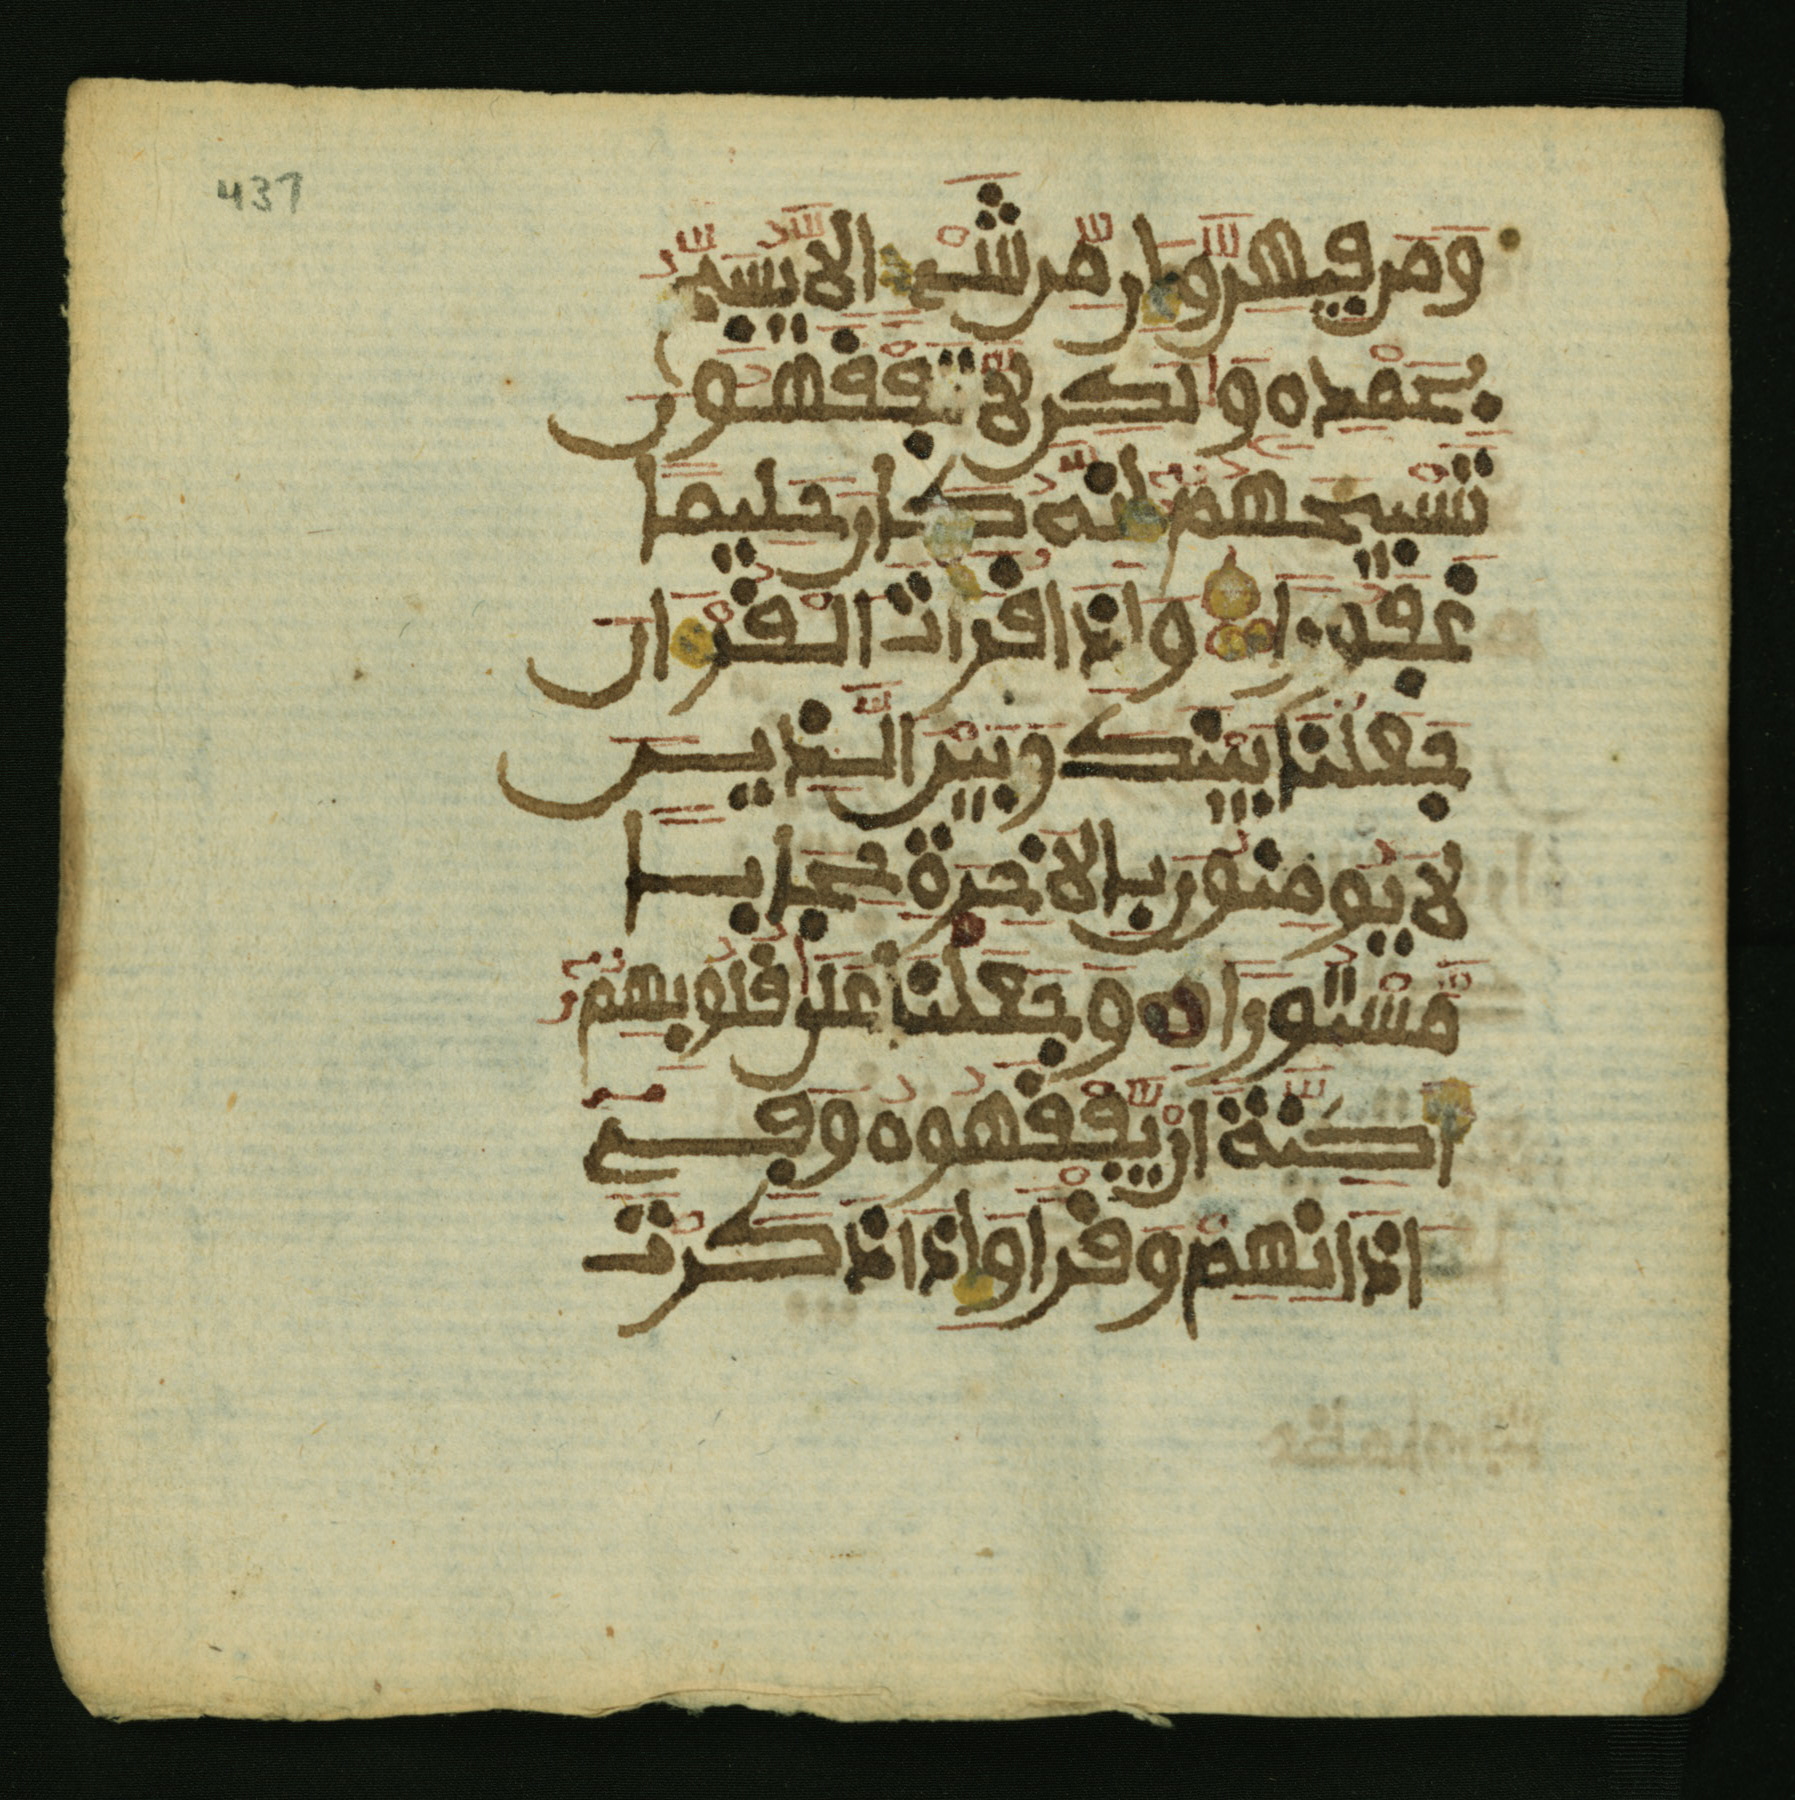 437
ومن فيهن وإن من شيء إلا يسبح
بحمده ولكن لا تفقهون
تسبيحهم إنه كان حليما
غفورا وإذا قرأت القرءان
جعلنا بينك وبين الذين
لا يومنون بالاخرة حجابا
مستورا وجعلنا على قلوبهم
أكنة ان يفقهوه وفي
ءاذانهم وقرا وإذا ذكرت